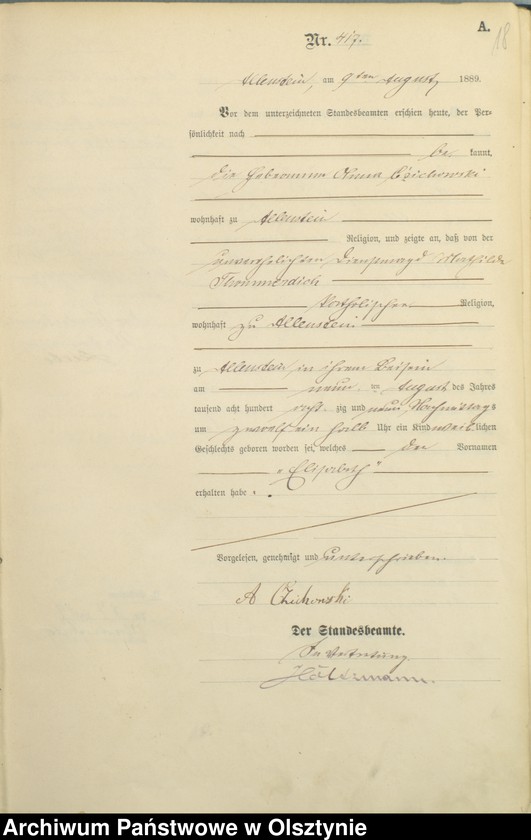 A.
18
Nr. 417.
Allenstein, am 9ten August 1889.
Vor dem unterzeichneten Standesbeamten erschien heute, der Per-
sönlichkeit nach
be kannt,
die Hebamme Anna Czichowski
wohnhaft zu Allenstein
Religion, und zeigte an, daß von der
unverehelichten Dienstmagd Mathilde
katholischer Religion,
wohnhaft zu Allenstein
zu Allenstein in ihrem Beisein
am neun ten August des Jahres
tausend acht hundert acht zig und neun Nachmittags
um zwoelf ein halb Uhr ein Kind weiblichen
Geschlechts geboren worden sei, welches den Vornamen
"Elisabeth"
erhalten habe.
Vorgelesen, genehmigt und unterschrieben.
A Czichowski
Der Standesbeamte.
In Vertretung
Archiwum Państwowe w Olsztynie